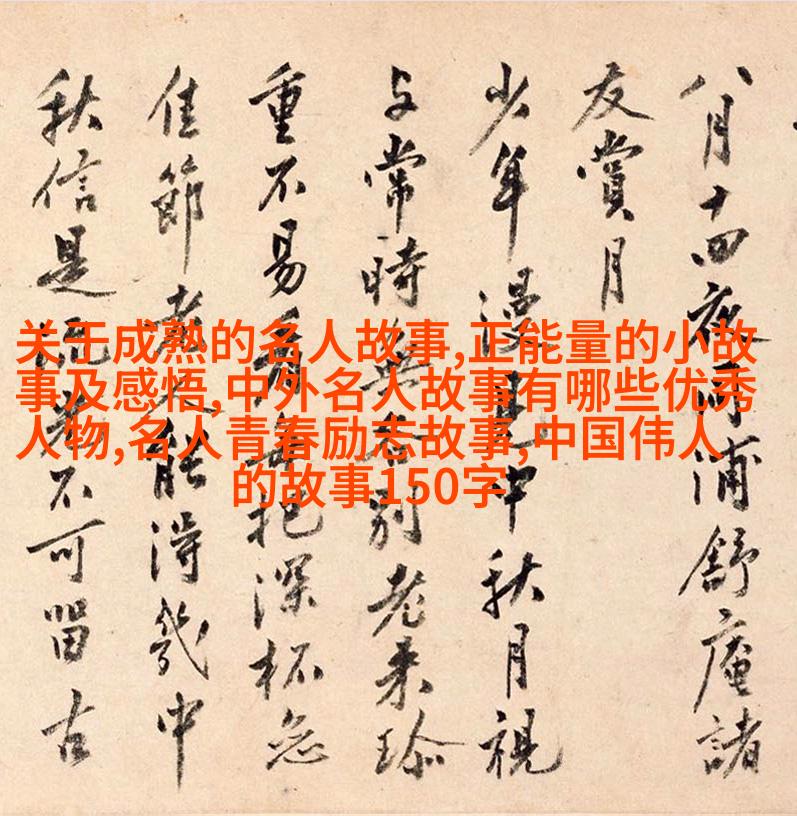 八月十四夜浦舒庵諸
友賞月
少年漫見中秋月視
与常時無各別老来珎
重不易看把深杯
佳節老人能得幾中
秋信是不可留古
关于成熟的名人故事,正能量的小故
事及感悟,中外名人故事有哪些优秀
人物,名人青春励志故事,中国伟人
的故事150字